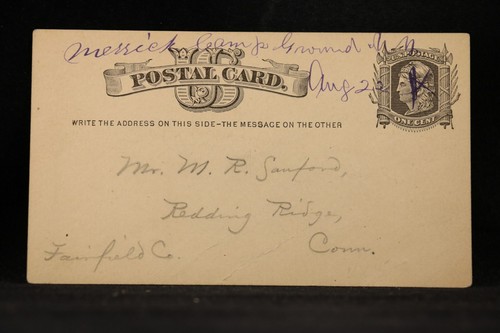 Merrick Camp Ground N.Y.
U.S. POSTAGE
US
POSTAL CARD.
Aug 22
ONE CENT
WRITE THE ADDRESS ON THIS SIDE-THE MESSAGE ON THE OTHER
Mr. M. R. Sanford,
Redding Ridge,
Fairfield Co. Conn.